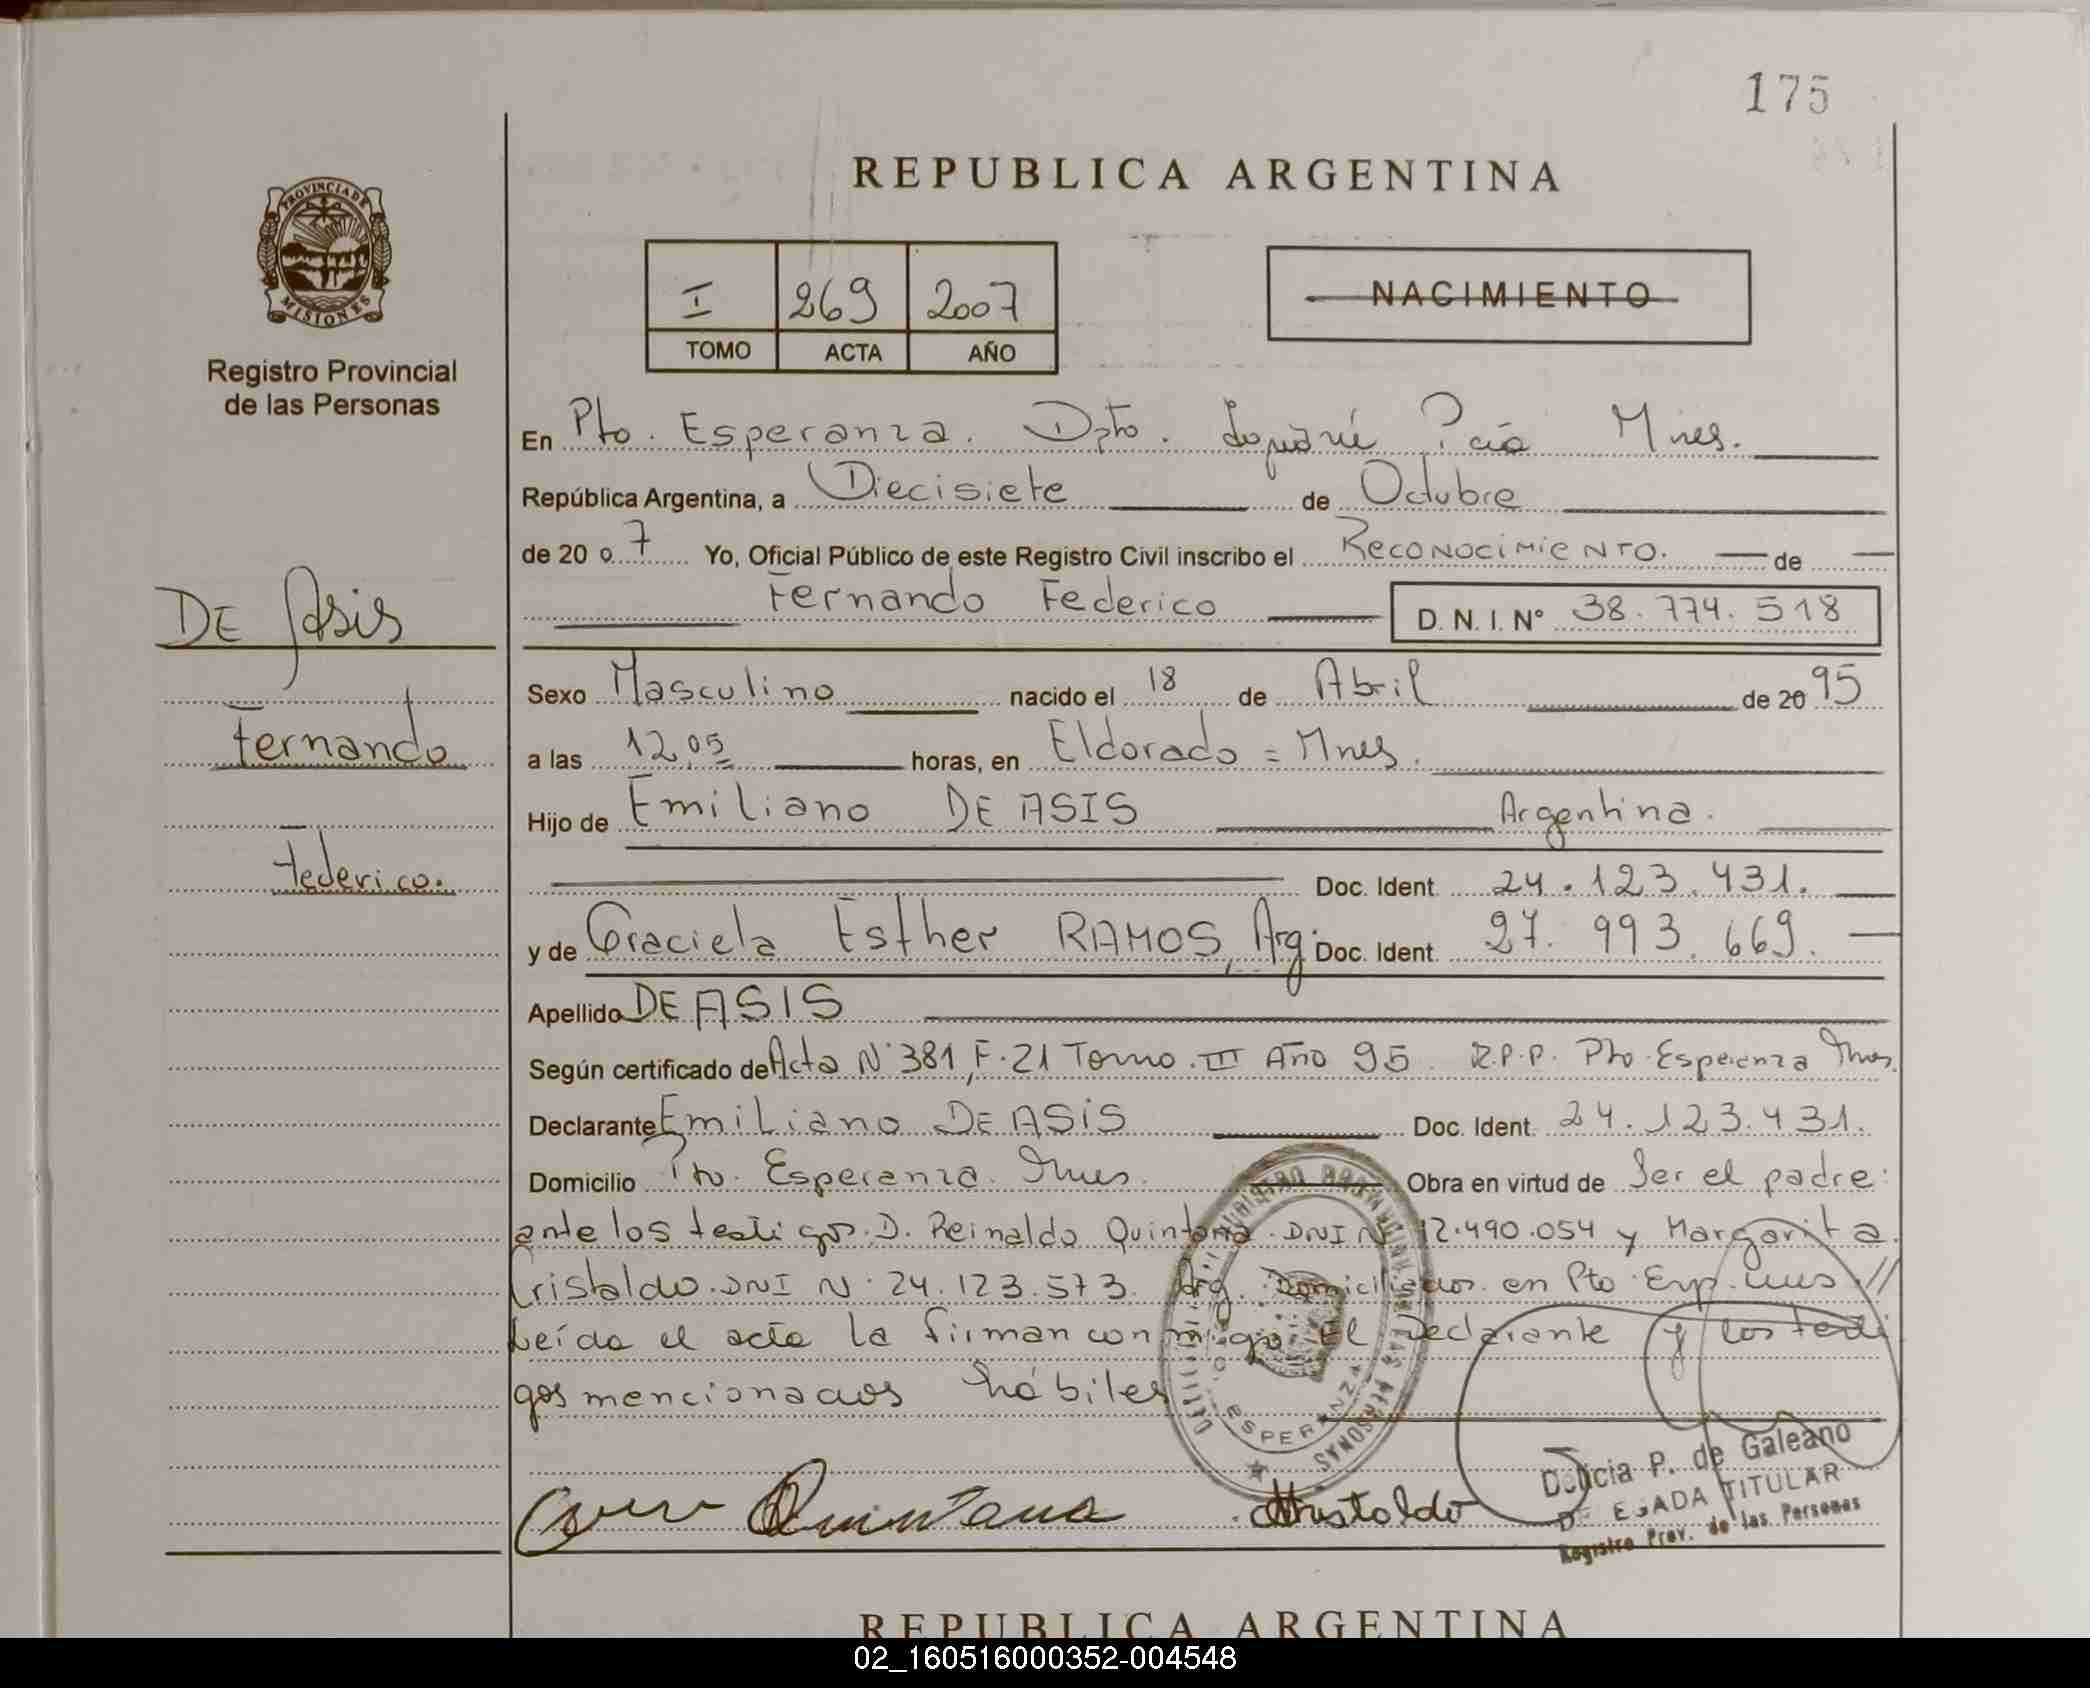 175
REPUBLICA ARGENTINA
PROVINCIA DE
MISIONES
Registro Provincial
de las Personas
I 269 2007
TOMO ACTA AÑO
NACIMIENTO
En Pto. Esperanza. Dpto. Iguazú Pcia Mnes.
República Argentina, a Diecisiete de Octubre
de 20 0 7 Yo, Oficial Público de este Registro Civil inscribo el Reconocimiento. de
Fernando Federico D. N. I. N° 38.774.518
DE Asis
Fernando
Federico.
Sexo Masculino nacido el 18 de Abril de 20 95
a las 12,05 horas, en Eldorado = Mnes.
Hijo de Emiliano DE ASIS Argentina.
Doc. Ident. 24.123.431.
y de Graciela Esther RAMOS, Arg. Doc. Ident. 27.993.669.
Apellido DE ASIS
Según certificado de Acta N° 381, F. 21 Tomo III Año 95 R.P.P. Pto. Esperanza Mnes.
Declarante Emiliano DE ASIS Doc. Ident. 24.123.431.
Domicilio Pto. Esperanza Mnes. Obra en virtud de Ser el padre
ante los testigos. D. Reinaldo Quintana. DNI N° 12.490.054 y Margarita
Cristaldo. DNI N° 24.123.573. Arg. Domiciliados en Pto Esp. Mnes //
Leída el acta la firman conmigo el Declarante y los testi
gos mencionados hábiles
ESPERANZA
Quintana
Cristaldo
Delicia P. de Galeano
DELEGADA TITULAR
Registro Prov. de las Personas
REPUBLICA ARGENTINA
02_160516000352-004548